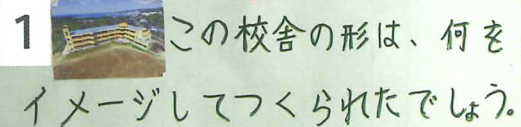 1 この校舎の形は、何を
イメージしてつくられたでしょう。